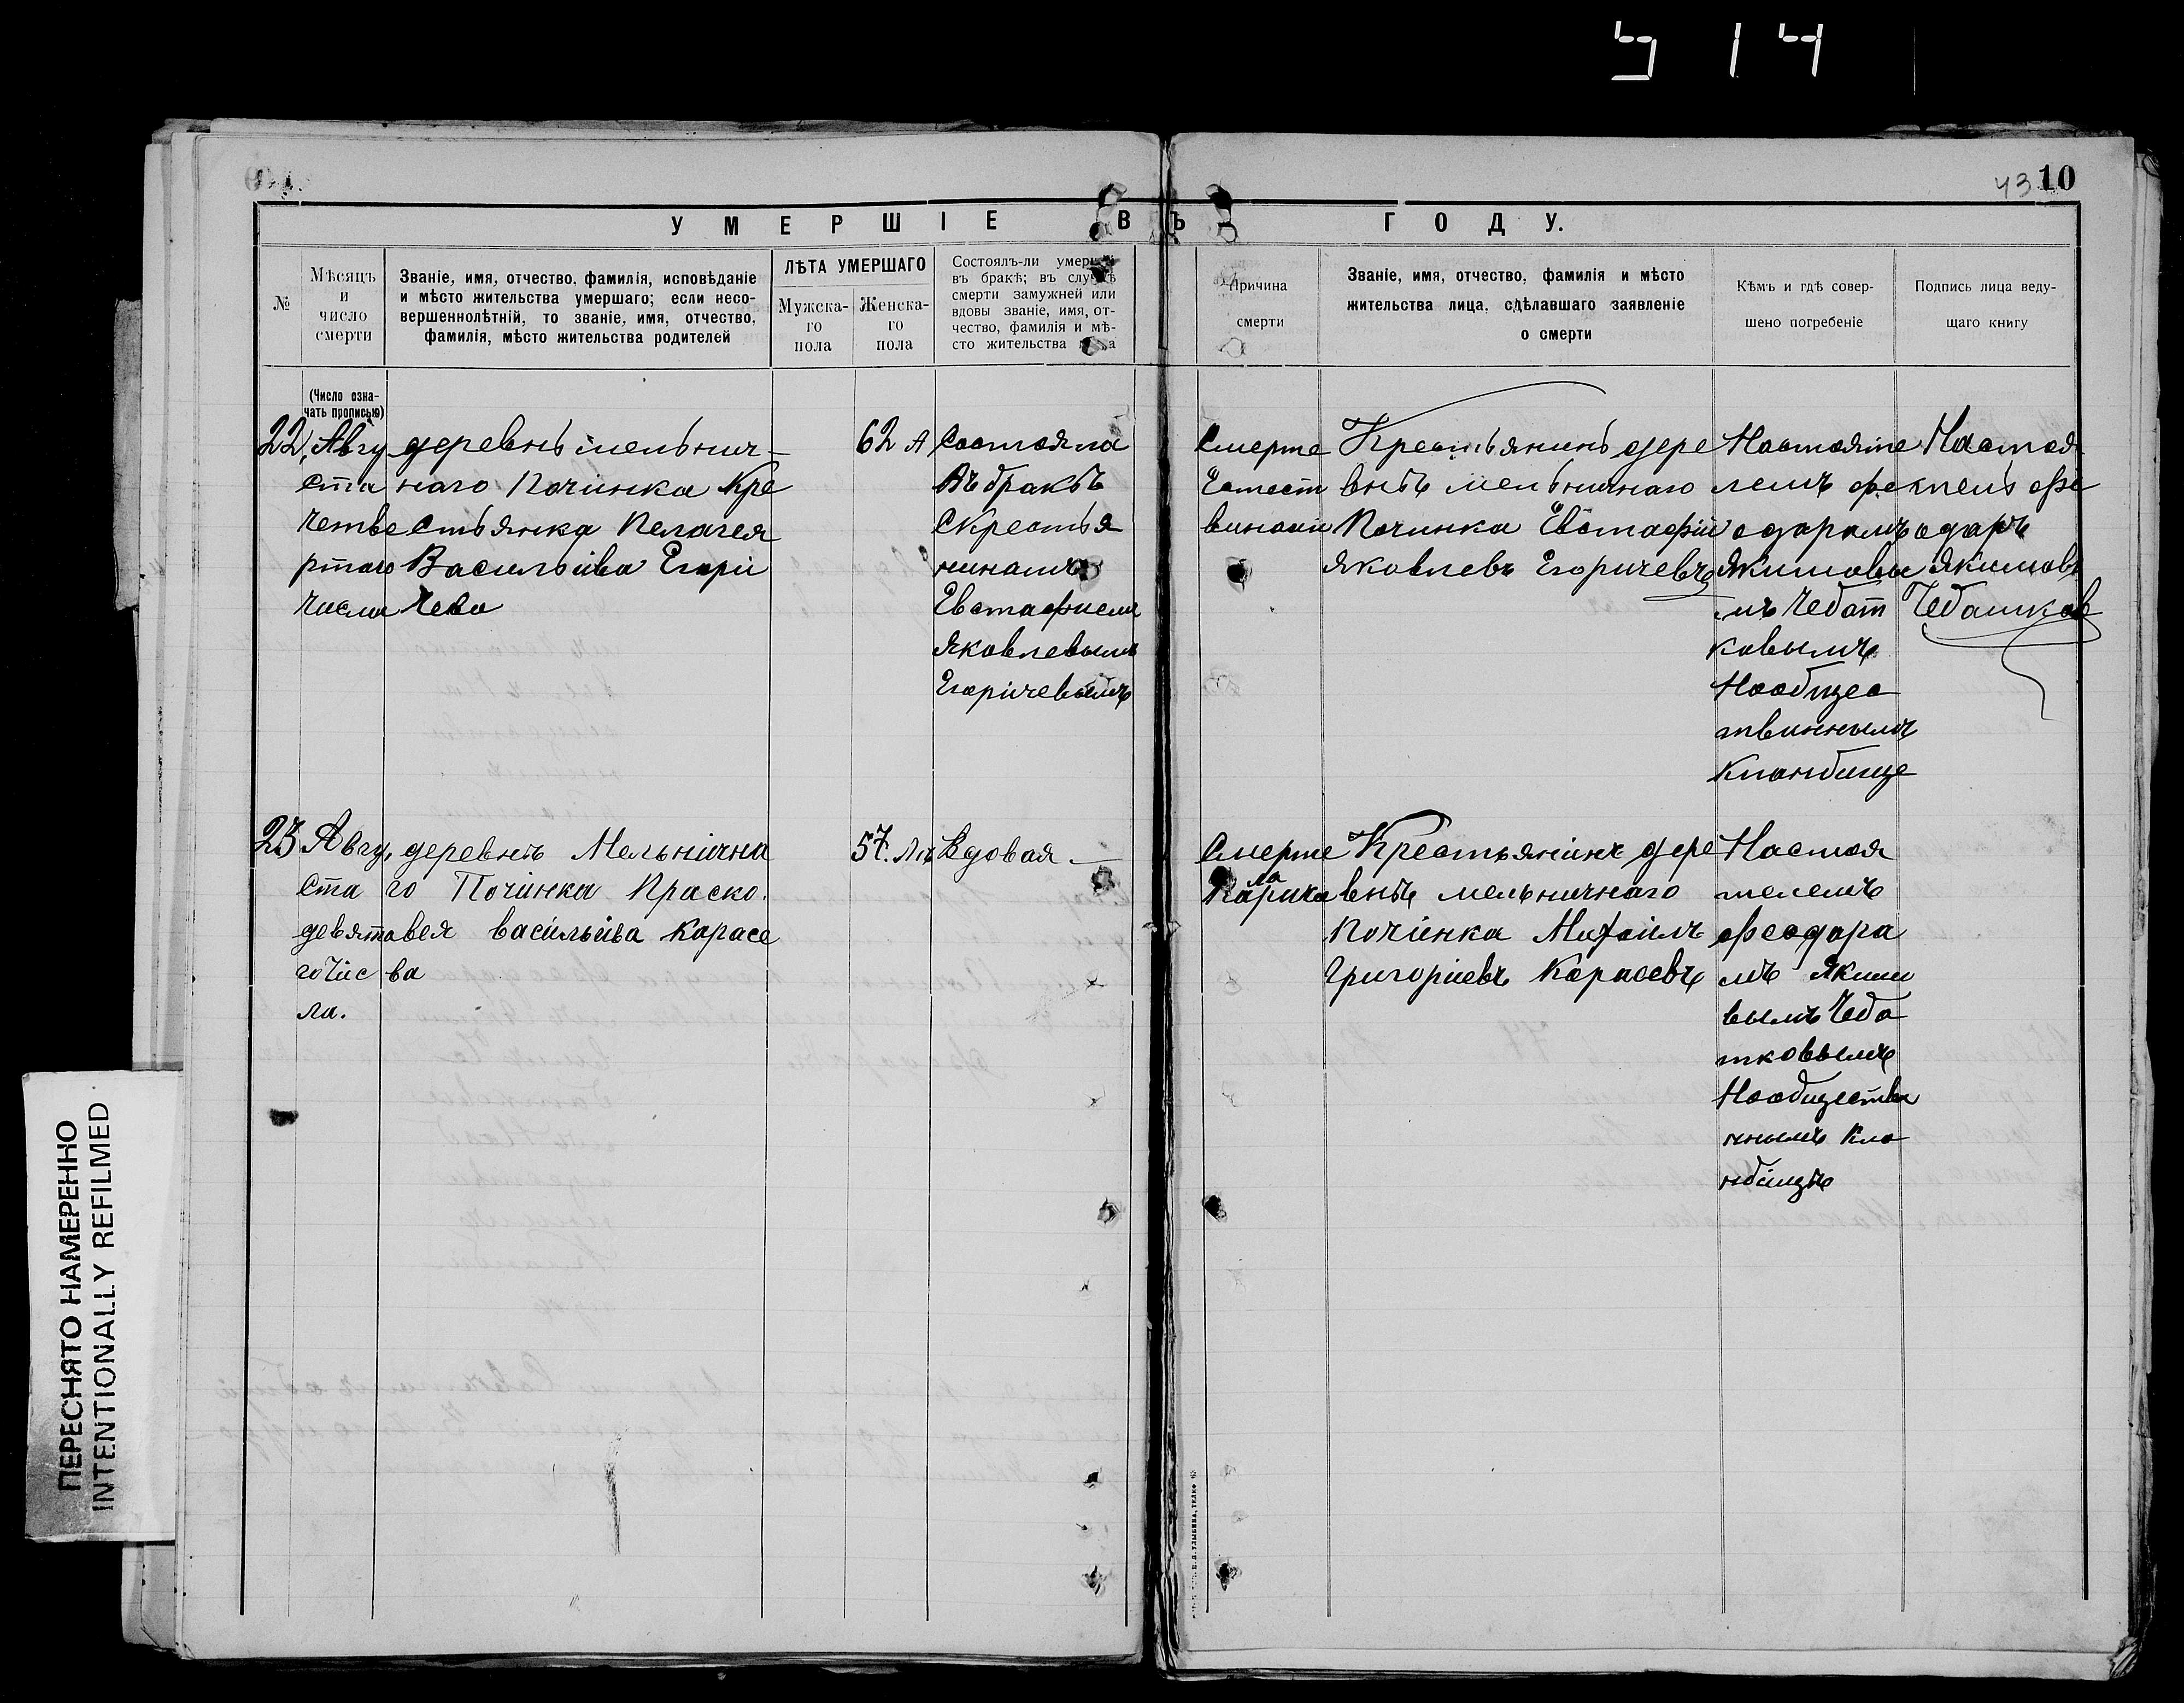 514
43 10
УМЕРШІЕ ВЪ ГОДУ.
№
Мѣсяцъ
и
число
смерти
Званіе, имя, отчество, фамилія, исповѣданіе
и мѣсто жительства умершаго; если несо-
вершеннолѣтній, то званіе, имя, отчество,
фамилія, мѣсто жительства родителей
ЛѢТА УМЕРШАГО
Мужска-
го
пола
Женска-
го
пола
Состоялъ-ли умершій
въ бракѣ; въ случаѣ
смерти замужней или
вдовы званіе, имя, от-
чество, фамилія и мѣ-
сто жительства мужа
Причина
смерти
Званіе, имя, отчество, фамилія и мѣсто
жительства лица, сдѣлавшаго заявленіе
о смерти
Кѣмъ и гдѣ совер-
шено погребеніе
Подпись лица веду-
щаго книгу
(Число озна-
чать прописью)
22,
Авгу
ста
четве
ртаго
числа
деревнь мельнич-
наго Починка Кре
стьянка Пелагея
Васильива Егори
чева
62 л
Состояла
Въ бракѣ
Скрестья
ниномъ
Евстафием
Яковлевымъ
Егоричевымъ
Смерте
Естест
винаи
Крестьянинъ дере
внѣ мельничнаго
Починка Евстафій
Яковлевъ Егоричевъ
Настояте
лемъ фе
одоромъ
Якимовы
мъ Чебот
ковымъ
Наобщес
твинымъ
Кланбище
Настоя
тель фе
одаръ
Якимовъ
Чебатков
23
Авгу,
ста
девятa
го чис
ла.
деревнѣ Мельнична
го Починка Праско.
вея васильива Карасе
ва
57. лѣ
Вдовая —
Смерте
Паралича
Крестьянинъ дере
внѣ мельничнаго
Починка Михаилъ
Григориевъ Карасевъ
Настоя
телемъ
феодора
мъ Яким
вымъ Чеба
тковымъ
Наобществи
нымъ Кла
нбищѣ
ПЕРЕСНЯТО НАМЕРЕННО
INTENTIONALLY REFILMED